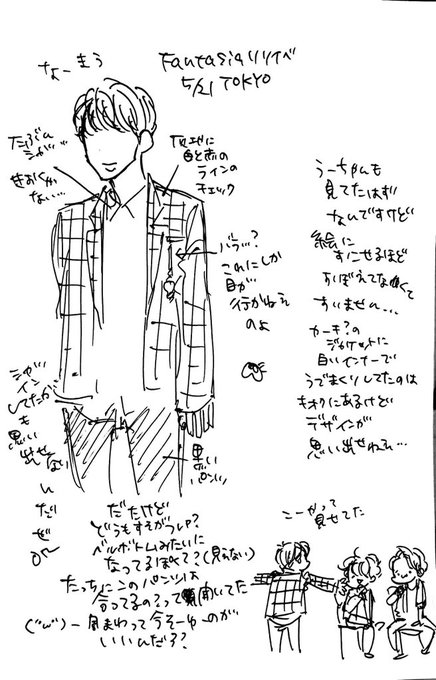 なーまう
Fantasiaリリイベ
5/21 TOKYO
たぶん
シャツ…
きおくが
ない…
灰地に
白と赤の
ラインの
チェック
バラ…?
これにしか
目が
行かねえ
のよ
うーちゃんも
見てたはず
なんですけど
絵に
おこせるほど
おぼえてなくて
すいません…
カーキ?の
ジャケットに
白いインナーで
うでまくりしてたのは
キオクにあるけど
デザインが
思い出せねえ…
シャツ
イン
してたか
も
思い
出せない
んだぜ
黒い
パンツ
だたけど
どうもすそがフレア?
ベルボトムみたいに
なってるぽくて?(見えない)
たっちにこのパンツは
合ってるの?って聞いてた
一周まわって今そーゆーのが
いいんだろ?
こーかって
見せてた